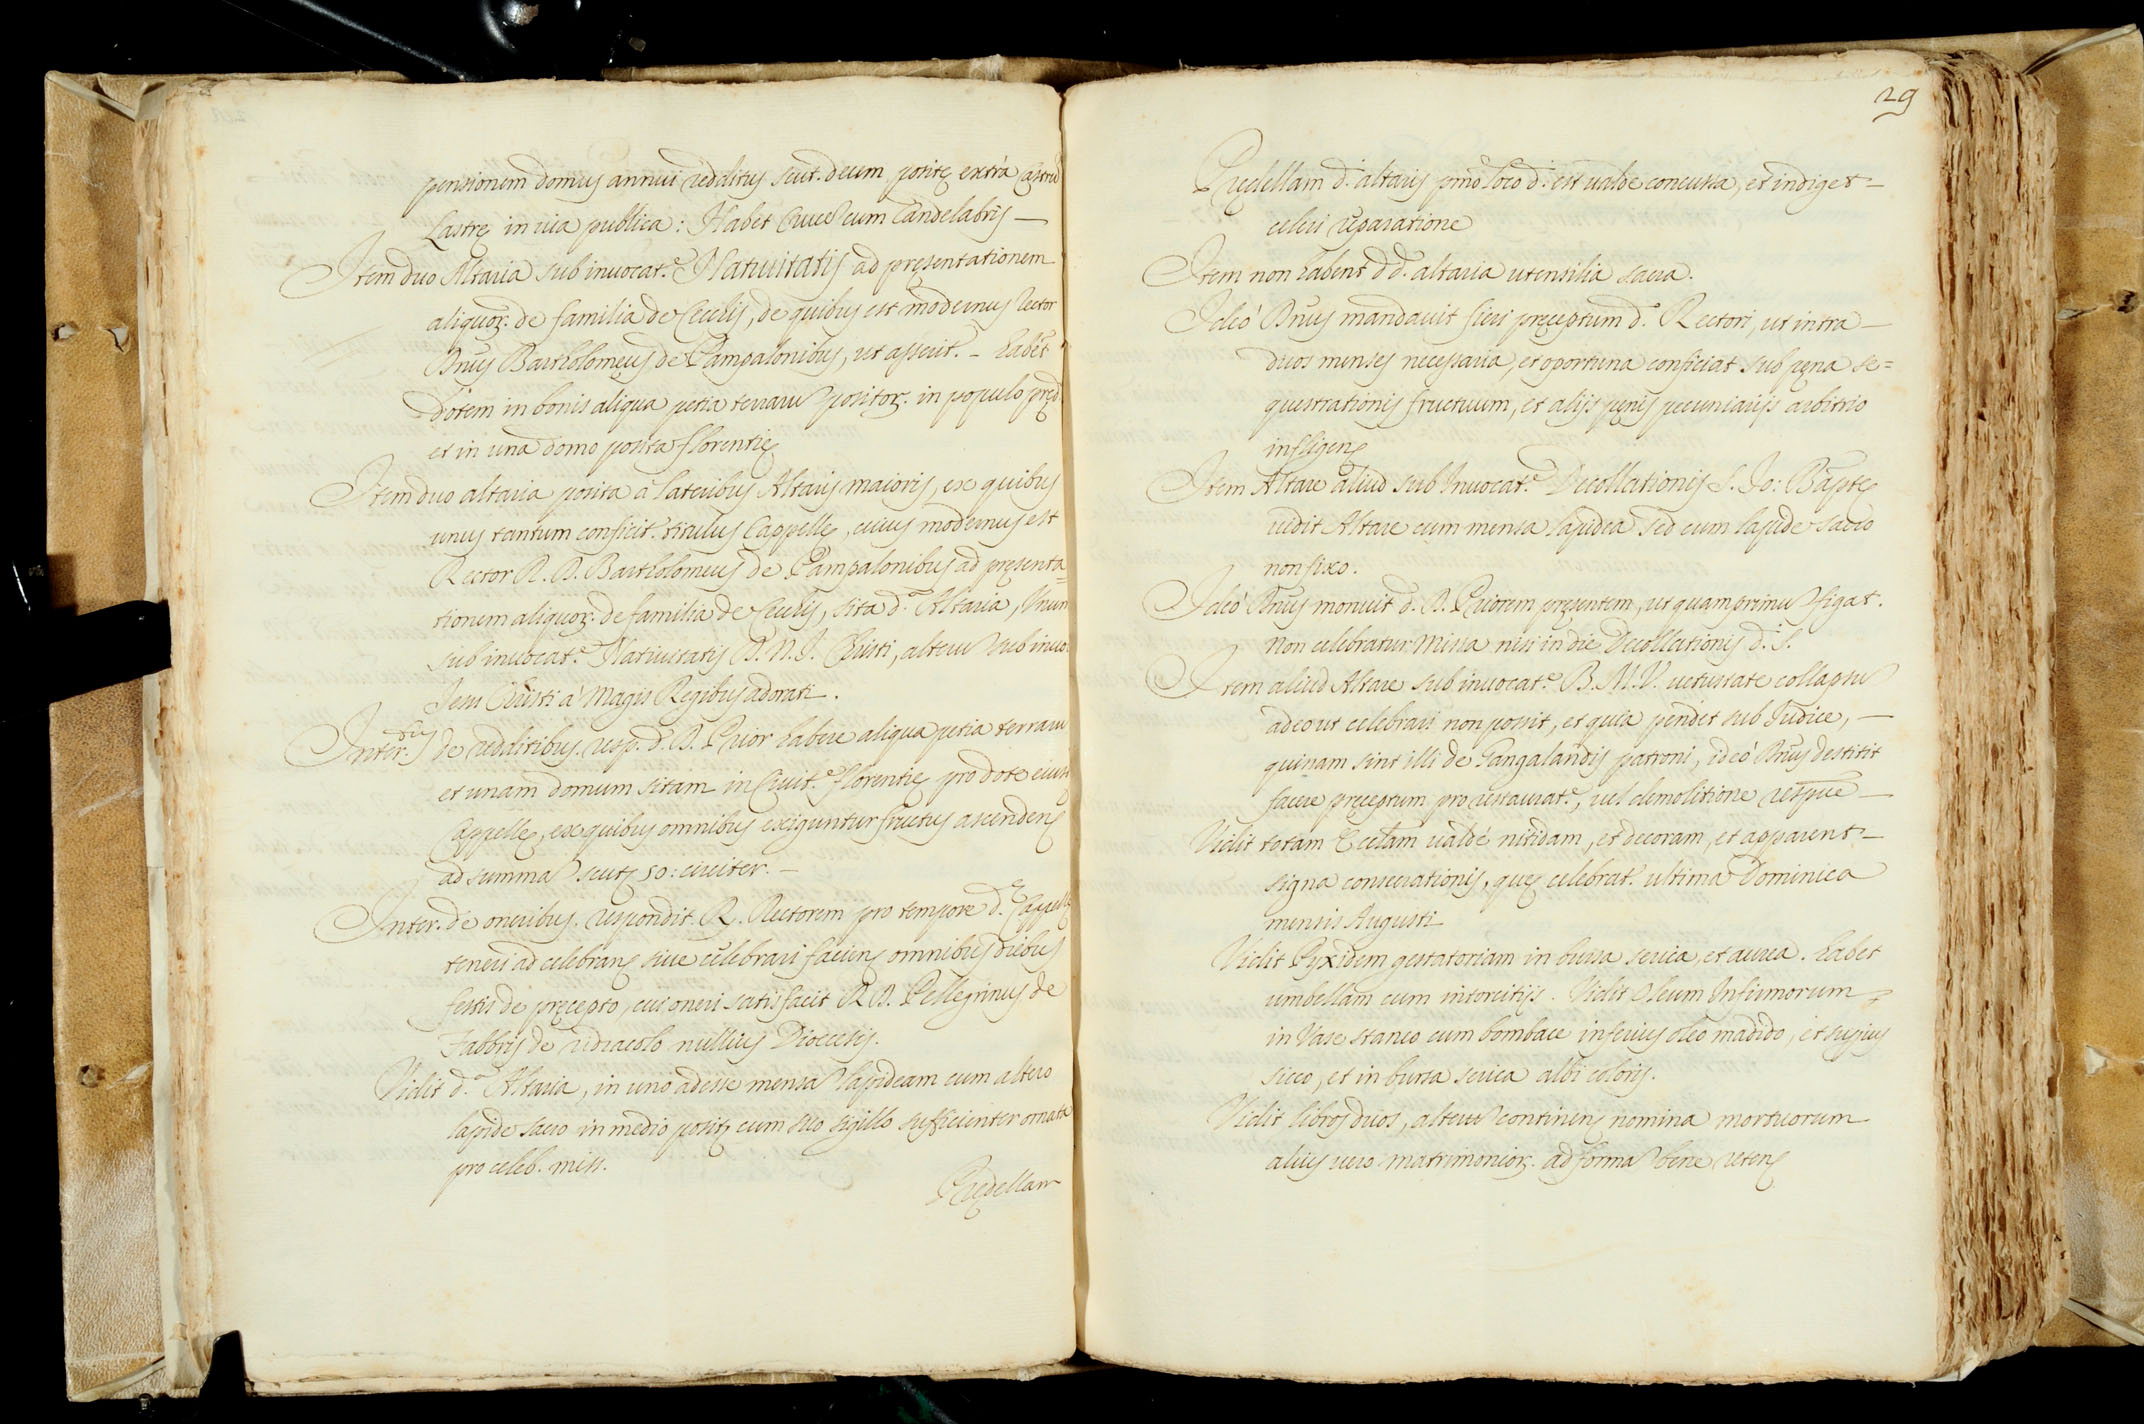 pensionem domus annui redditus scut. decem positę extra Castru
Lastrę in via publica: Habet Cruce cum Candelabris —
Item duo Altaria sub invocat.e Nativitatis ad pręsentationem
aliquor. de familia de Cecchis, de quibus est modernus Rector
Dnus Bartholomeus de Pampalonibus, ut asseruit. – habet
dotem in bonis aliqua petia terraru positor. in populo pręd.
et in una domo posita florentię
Item duo altaria posita a lateribus Altaris maioris, ex quibus
unus tantum conficit. titulus Cappellę, cuius modernus est
Rector R. D. Bartholomeus de Pampalonibus ad pręsenta=
tionem aliquor. de familia de Cecchis, sita d.a Altaria, Unum
sub invocat.e Nativitatis D. N. J. Christi, alteru sub invo.
Jesu Christi a Magis Regibus adorati.
Inter. dus de redditibus. resp. d. D. Prior habere aliqua petia terraru
et unam domum sitam in Civit.e florentię pro dote eius
Cappellę, ex quibus omnibus exiguntur fructus ascendens
ad summa scut. 50: circiter. –
Inter. de oneribus. respondit R. Rectorem pro tempore d.e Cappellę
teneri ad celebrans sive celebrari faciens omnibus diebus
festis de pręcepto, cui oneri satisfacit R. D. Pellegrinus de
Fabbris de nullius Diocesis.
Vidit d.a Altaria, in uno adesse mensa lapideam cum altero
lapide sacro in medio posit. cum suo sigillo sufficienter ornata
pro celeb. miss.
Prędellam
29
Prędellam d.i altaris pmo loco d.i est valde concussa, et indiget –
celeri reparatione
Item non habent dd. altaria utensilia sacra.
Ideo Dnus mandavit fieri pręceptum d.o Rectori, ut intra –
duos menses necessaria, et oportuna conficiat sub pęna se=
questrationis fructuum, et alijs pęnis pecuniarijs arbitrio
infligens
Item Altare aliud sub Invocat.e Decollationis S. Jo: Baptę
vidit Altare cum mensa lapidea sed cum lapide sacro
non fixo.
Ideo Dnus monuit d. D. Priorem pręsentem, ut quam primu figat.
Non celebratur Missa nisi in die Decollationis d.i S.
Item aliud Altare sub invocat.e B. M. V. vetustate collapsu
adeo ut celebrari non possit, et quia pendet sub Iudice, –
quinam sint illi de Gangalandis patroni, ideo Dnus destitit
facere pręceptum pro restaurat.e, vel demolitione respve –
Vidit totam Ecclam valde nitidam, et decoram, et apparent –
signa consecrationis, quę celebrat. ultima Dominica
mensis Augusti
Vidit Pyxidem gestatoriam in bursa serica, et aurea. habet
umbellam cum intorcitijs. Vidit Oleum Infirmorum
in Vase staneo cum bombace inferius oleo madido, et supius
sicco, et in bursa serica albi coloris.
Vidit libros duos, alteru continens nomina mortuorum
alius vero matrimonior. ad forma bene retens